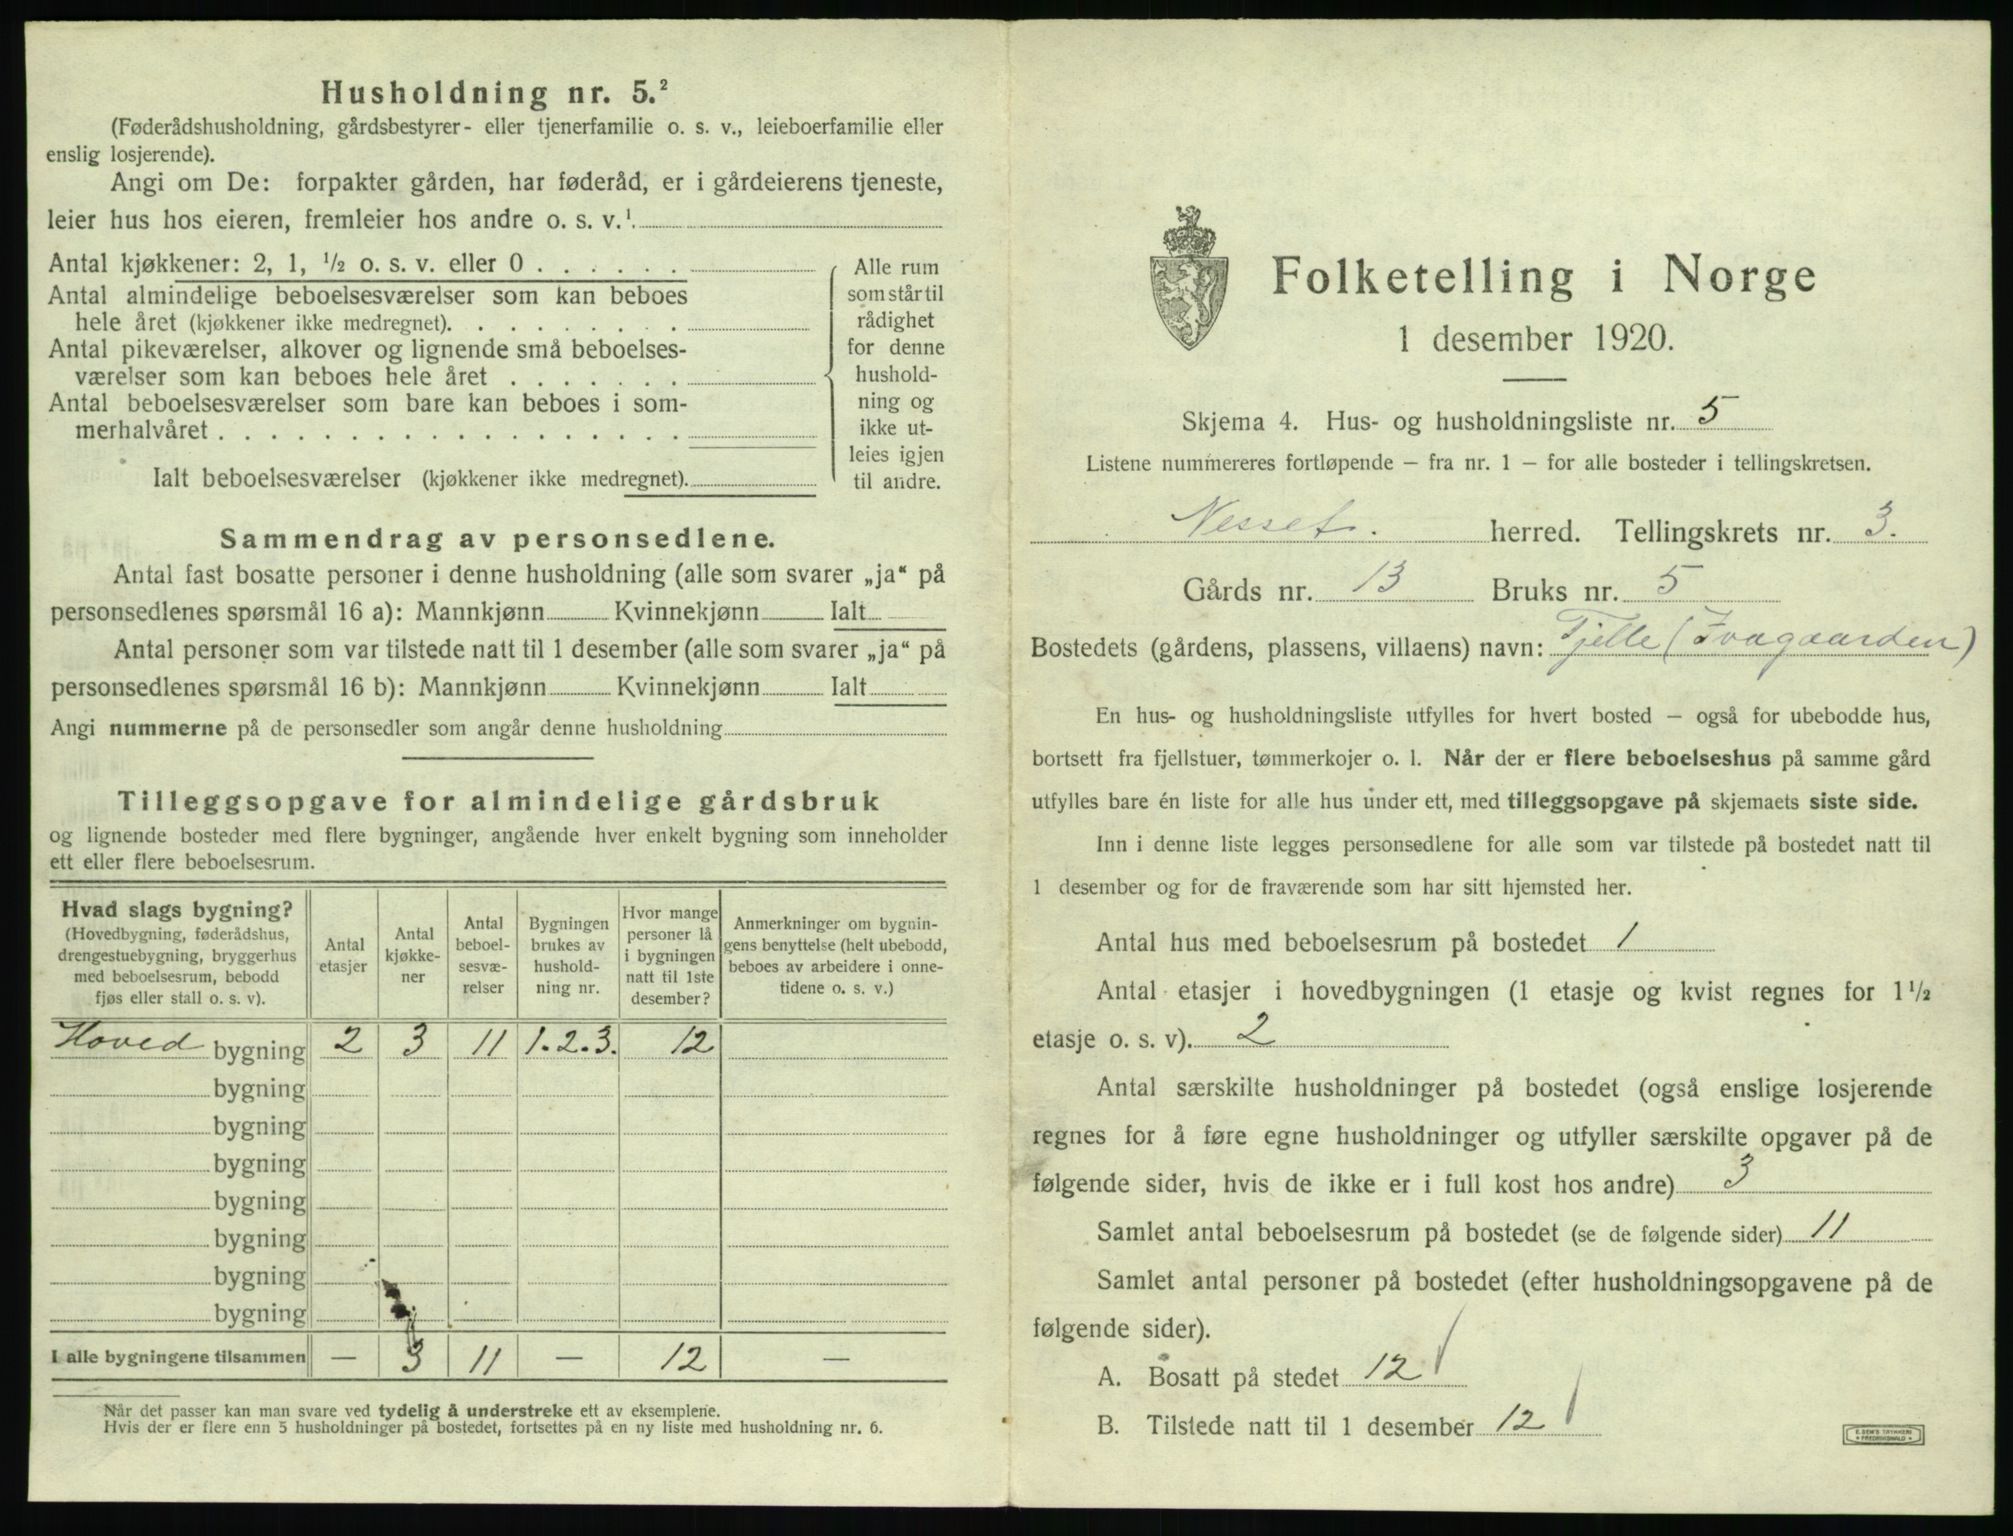 Husholdning nr. 5.²
(Føderådshusholdning, gårdsbestyrer- eller tjenerfamilie o. s. v., leieboerfamilie eller
enslig losjerende).
Angi om De: forpakter gården, har føderåd, er i gårdeierens tjeneste,
leier hus hos eieren, fremleier hos andre o. s. v.¹
Antal kjøkkener: 2, 1, ½ o. s. v. eller 0
Antal almindelige beboelsesværelser som kan beboes
hele året (kjøkkener ikke medregnet).
Antal pikeværelser, alkover og lignende små beboelses-
værelser som kan beboes hele året
Antal beboelsesværelser som bare kan beboes i som-
merhalvåret
Ialt beboelsesværelser (kjøkkener ikke medregnet).
Alle rum
som står til
rådighet
for denne
hushold-
ning og
ikke ut-
leies igjen
til andre.
Sammendrag av personsedlene.
Antal fast bosatte personer i denne husholdning (alle som svarer „ja“ på
personsedlenes spørsmål 16 a): Mannkjønn Kvinnekjønn Ialt
Antal personer som var tilstede natt til 1 desember (alle som svarer „ja“ på
personsedlenes spørsmål 16 b): Mannkjønn Kvinnekjønn Ialt
Angi nummerne på de personsedler som angår denne husholdning
Tilleggsopgave for almindelige gårdsbruk
og lignende bosteder med flere bygninger, angående hver enkelt bygning som inneholder
ett eller flere beboelsesrum.
Hvad slags bygning?
(Hovedbygning, føderådshus,
drengestuebygning, bryggerhus
med beboelsesrum, bebodd
fjøs eller stall o. s. v).
Antal
etasjer
Antal
kjøkke-
ner
Antal
beboel-
sesvæ-
relser
Bygningen
brukes av
hushold-
ning nr.
Hvor mange
personer lå
i bygningen
natt til 1ste
desember?
Anmerkninger om bygnin-
gens benyttelse (helt ubebodd,
beboes av arbeidere i onne-
tidene o. s. v.)
Hoved bygning 2 3 11 1.2.3. 12
bygning
bygning
bygning
bygning
bygning
bygning
bygning
I alle bygningene tilsammen — 3 11 — 12 —
Når det passer kan man svare ved tydelig å understreke ett av eksemplene.
Hvis der er flere enn 5 husholdninger på bostedet, fortsettes på en ny liste med husholdning nr. 6.
Folketelling i Norge
1 desember 1920.
Skjema 4. Hus- og husholdningsliste nr. 5
Listene nummereres fortløpende — fra nr. 1 — for alle bosteder i tellingskretsen.
Nesset. herred. Tellingskrets nr. 3.
Gårds nr. 13 Bruks nr. 5
Bostedets (gårdens, plassens, villaens) navn: Tjelle (Ivagaarden)
En hus- og husholdningsliste utfylles for hvert bosted — også for ubebodde hus,
bortsett fra fjellstuer, tømmerkojer o. l. Når der er flere beboelseshus på samme gård
utfylles bare én liste for alle hus under ett, med tilleggsopgave på skjemaets siste side.
Inn i denne liste legges personsedlene for alle som var tilstede på bostedet natt til
1 desember og for de fraværende som har sitt hjemsted her.
Antal hus med beboelsesrum på bostedet 1
Antal etasjer i hovedbygningen (1 etasje og kvist regnes for 1½
etasje o. s. v). 2
Antal særskilte husholdninger på bostedet (også enslige losjerende
regnes for å føre egne husholdninger og utfyller særskilte opgaver på de
følgende sider, hvis de ikke er i full kost hos andre) 3
Samlet antal beboelsesrum på bostedet (se de følgende sider) 11
Samlet antal personer på bostedet (efter husholdningsopgavene på de
følgende sider).
A. Bosatt på stedet 12
B. Tilstede natt til 1 desember 12
E. SEM'S TRYKKERI
FREDRIKSHALD